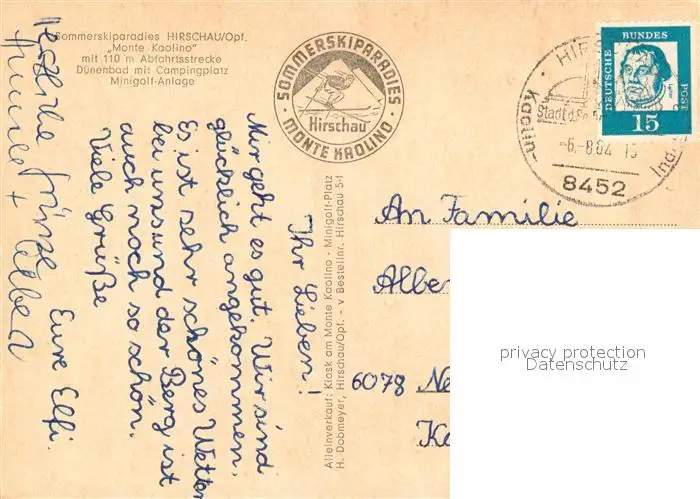 Sommerskiparadies HIRSCHAU/Opf.
„Monte Kaolino"
mit 110 m Abfahrtsstrecke
Dünenbad mit Campingplatz
Minigolf-Anlage
· SOMMERSKIPARADIES ·
MONTE KAOLINO
Hirschau
HIRS
Stadt d.
Kaolin-
Ind
-6.-8.64
8452
DEUTSCHE BUNDES POST
15
Ihr Lieben!
Mir geht es gut. Wir sind
glücklich angekommen.
Es ist sehr schönes Wetter
bei uns und der Berg ist
auch noch so schön.
Viele Grüße
Eure Elfi.
herzliche Grüße
+ Albert
Alleinverkauf: Kiosk am Monte Kaolino - Minigolf-Platz
H. Dobmeyer, Hirschau/Opf. - v Bestellnr. Hirschau 5-1
An Familie
Alber
6078 Ne
Ka
privacy protection
Datenschutz